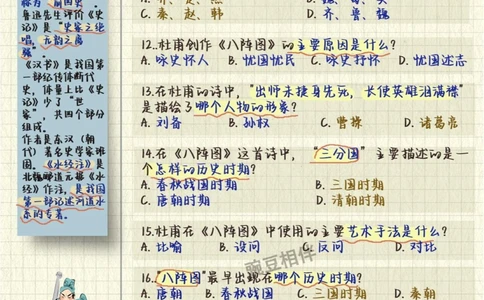 称为“前四史”。
鲁迅先生评价《史
记》是“史家之绝
唱，无韵之离
骚”。
《汉书》是我国第
一部纪传体断代
史，体量上比《史
记》少了“世
家”，共四个部分
组成。
作者是东汉（朝
代）著名史学家班
固。《水经注》是
北魏郦道元据《水
经》作注，是我国
第一部记述河道水
系的专著。
C. 秦、赵、韩
D. 齐、鲁、魏
12.杜甫创作《八阵图》的主要原因是什么？
A. 咏史怀人 B. 忧国忧民 C. 咏史抒怀 D. 忧国述志
13.在杜甫的诗中，“出师未捷身先死，长使英雄泪满襟”
是描绘了哪个人物的形象？
A. 刘备 B. 孙权 C. 曹操 D. 诸葛亮
14.在《八阵图》这首诗中，“三分国”主要描述的是一
个怎样的历史时期？
A. 春秋战国时期 B. 三国时期
C. 唐朝时期 D. 清朝时期
15.杜甫在《八阵图》中使用的主要艺术手法是什么？
A. 比喻 B. 设问 C. 反问 D. 对比
豌豆相伴
16.“八阵图”最早出现在哪个历史时期？
A. 唐朝 B. 春秋战国 C. 三国时期 D. 秦朝